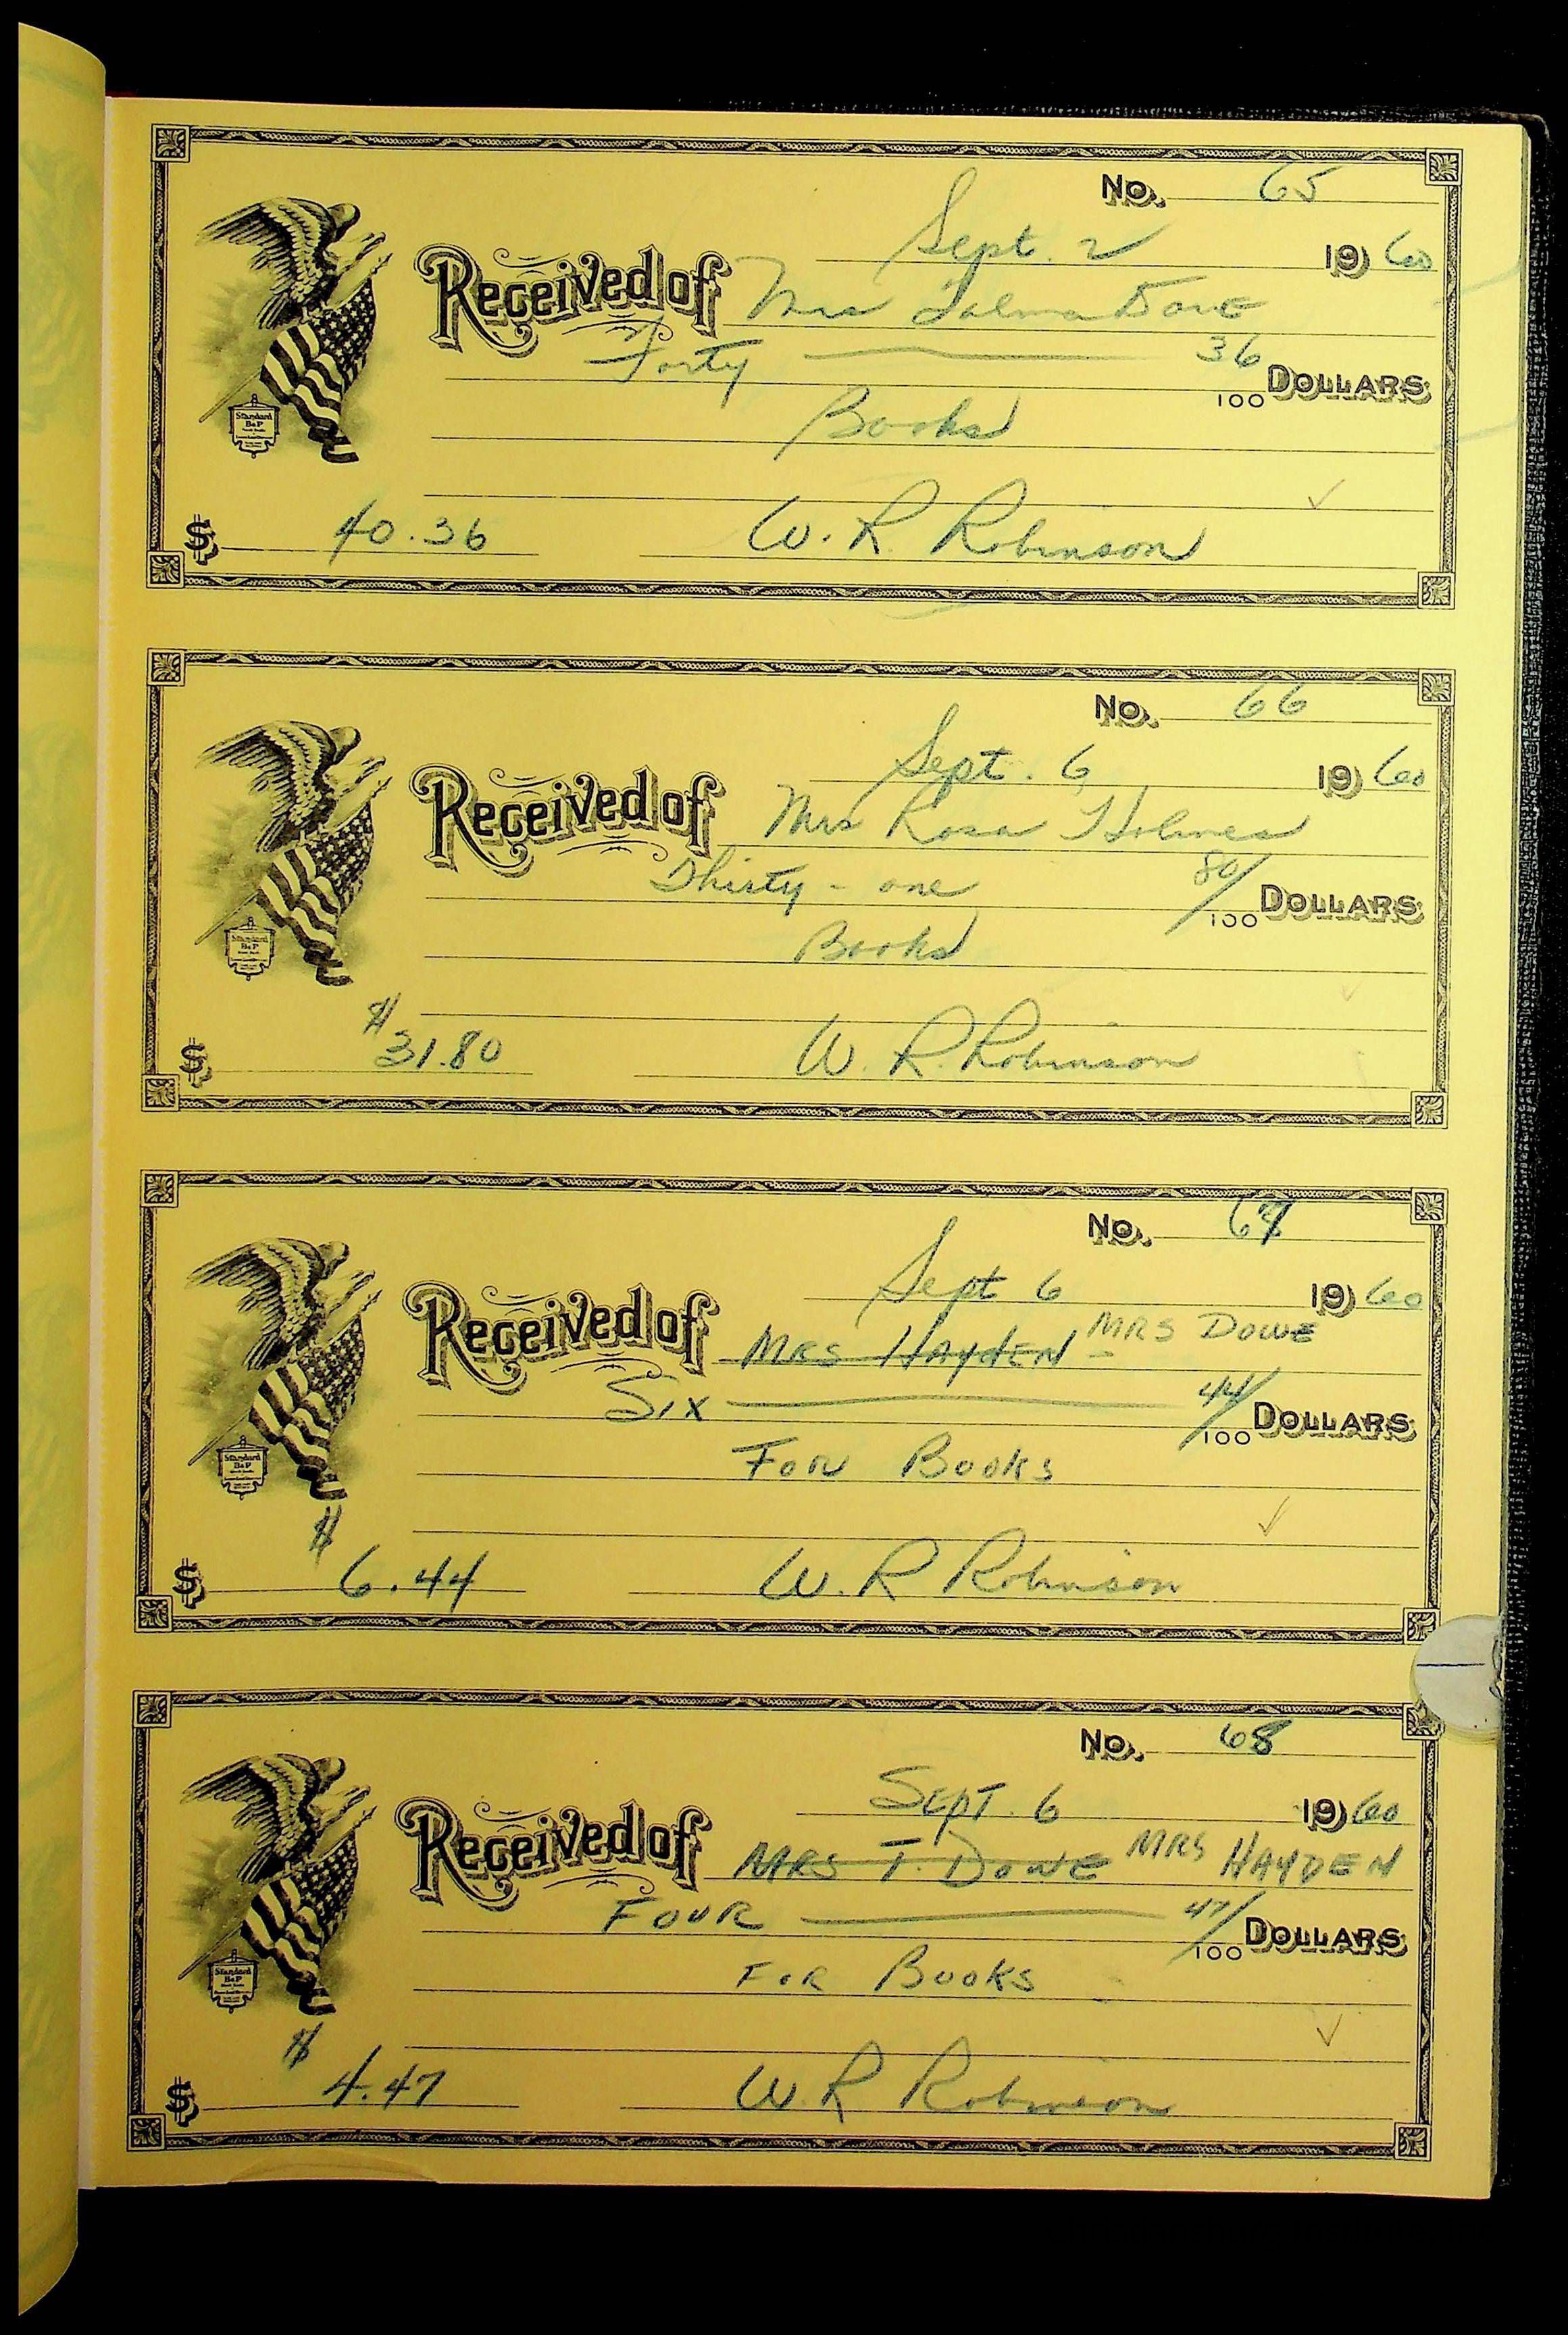 No. 65
Sept. 2 1960
Received of Mrs Talma Dowe
Forty 36/100 DOLLARS
Books
$ 40.36 W. R. Robinson
Standard
B&P
No. 66
Sept. 6, 1960
Received of Mrs Rosa Holmes
Thirty - one 80/100 DOLLARS
Books
$
$ 31.80 W. R. Robinson
Standard
B&P
No. 67
Sept 6 1960
Received of MRS HAYDEN MRS DOWE
SIX 44/100 DOLLARS
FOR BOOKS
$
$ 6.44 W. R Robinson
Standard
B&P
No. 68
SEPT. 6 1960
Received of MRS T. DOWE MRS HAYDEN
FOUR 47/100 DOLLARS
FOR BOOKS
$
$ 4.47 W. R Robinson
Standard
B&P